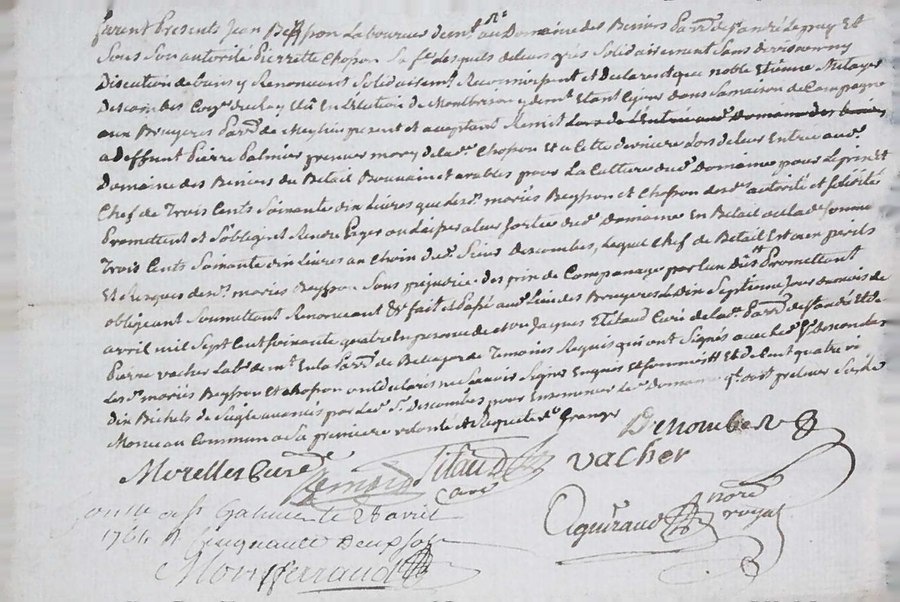 furent Presents Jean Beysson Laboureur demt au Domaine des Beniers Parr.se de st andré Lepuy Et
Sous Son autorité Pierrette Chosson Sa fe Lesquels deleurs grés Solidairement Sans division ny
Discution de biens y Renonceant Solidairemt Reconnoissent et declarent que noble Etienne
Descombes Cong.er du Roy Elû en L'élection de Montbrison y demt Etant Cejour dans Samaison de Campagne
aux Bruyeres Parr.se de present et acceptant Remit Lors de L'Entrée aud. Domaine des beniers
a deffunt Pierre Palmier premier mary de lad. Chosson Et a Cette derniere Lors deleur Entrée aud.
Domaine des Beniers du Betail Bouvain et arables pour La Culture dud. Domaine pour Leprix Et
Chef de Trois Cents Soixante dix Livres que Les d. mariés Beysson et Chosson desd. autorité et Solidité
Promettent et S'obligent Rendre Payer ou Laisser a leur Sortie dud. Domaine En Betail ou lad. Somme
Trois Cents Soixante dix Livres au Choix dud. Sieur Descombes, Lequel Chef de Betail Est aux perils
Et Risques desd. mariés Beysson Sous prejudice des prix de Companage par l'un Dus Promettant
obligeant Soumettant Renonceant &c fait et Passé aud. Lieu des Bruyeres Le Dix Septieme Jour du mois de
avril mil Sept Cent Soixante quatre En presence de Jaques Titaud Curé de lad. Parr.se de St andré Et de
Pierre vacher Lab.r demt En la Parr.se de Bellegarde Temoins Requis qui ont Signés avec led. Sr. Descombes
Les d. mariés Beysson Et Chosson ont declarés ne Scavoir Signer Enquis et Sommés Et de Cent quatre vi
Dix Bichets de Seigle avancés par Led. Sr. Descombes pour Ensemencer led. domaine qu'ont prelever
Monceau Commun a Sa premiere volonté et Requete de Granger
Denombe
Morelles Curé Titaud vacher
Curé
Aguiraud nore royal
à st Galmier le 28 avril
1764 R Cinquante Deux Sols
Montferrand